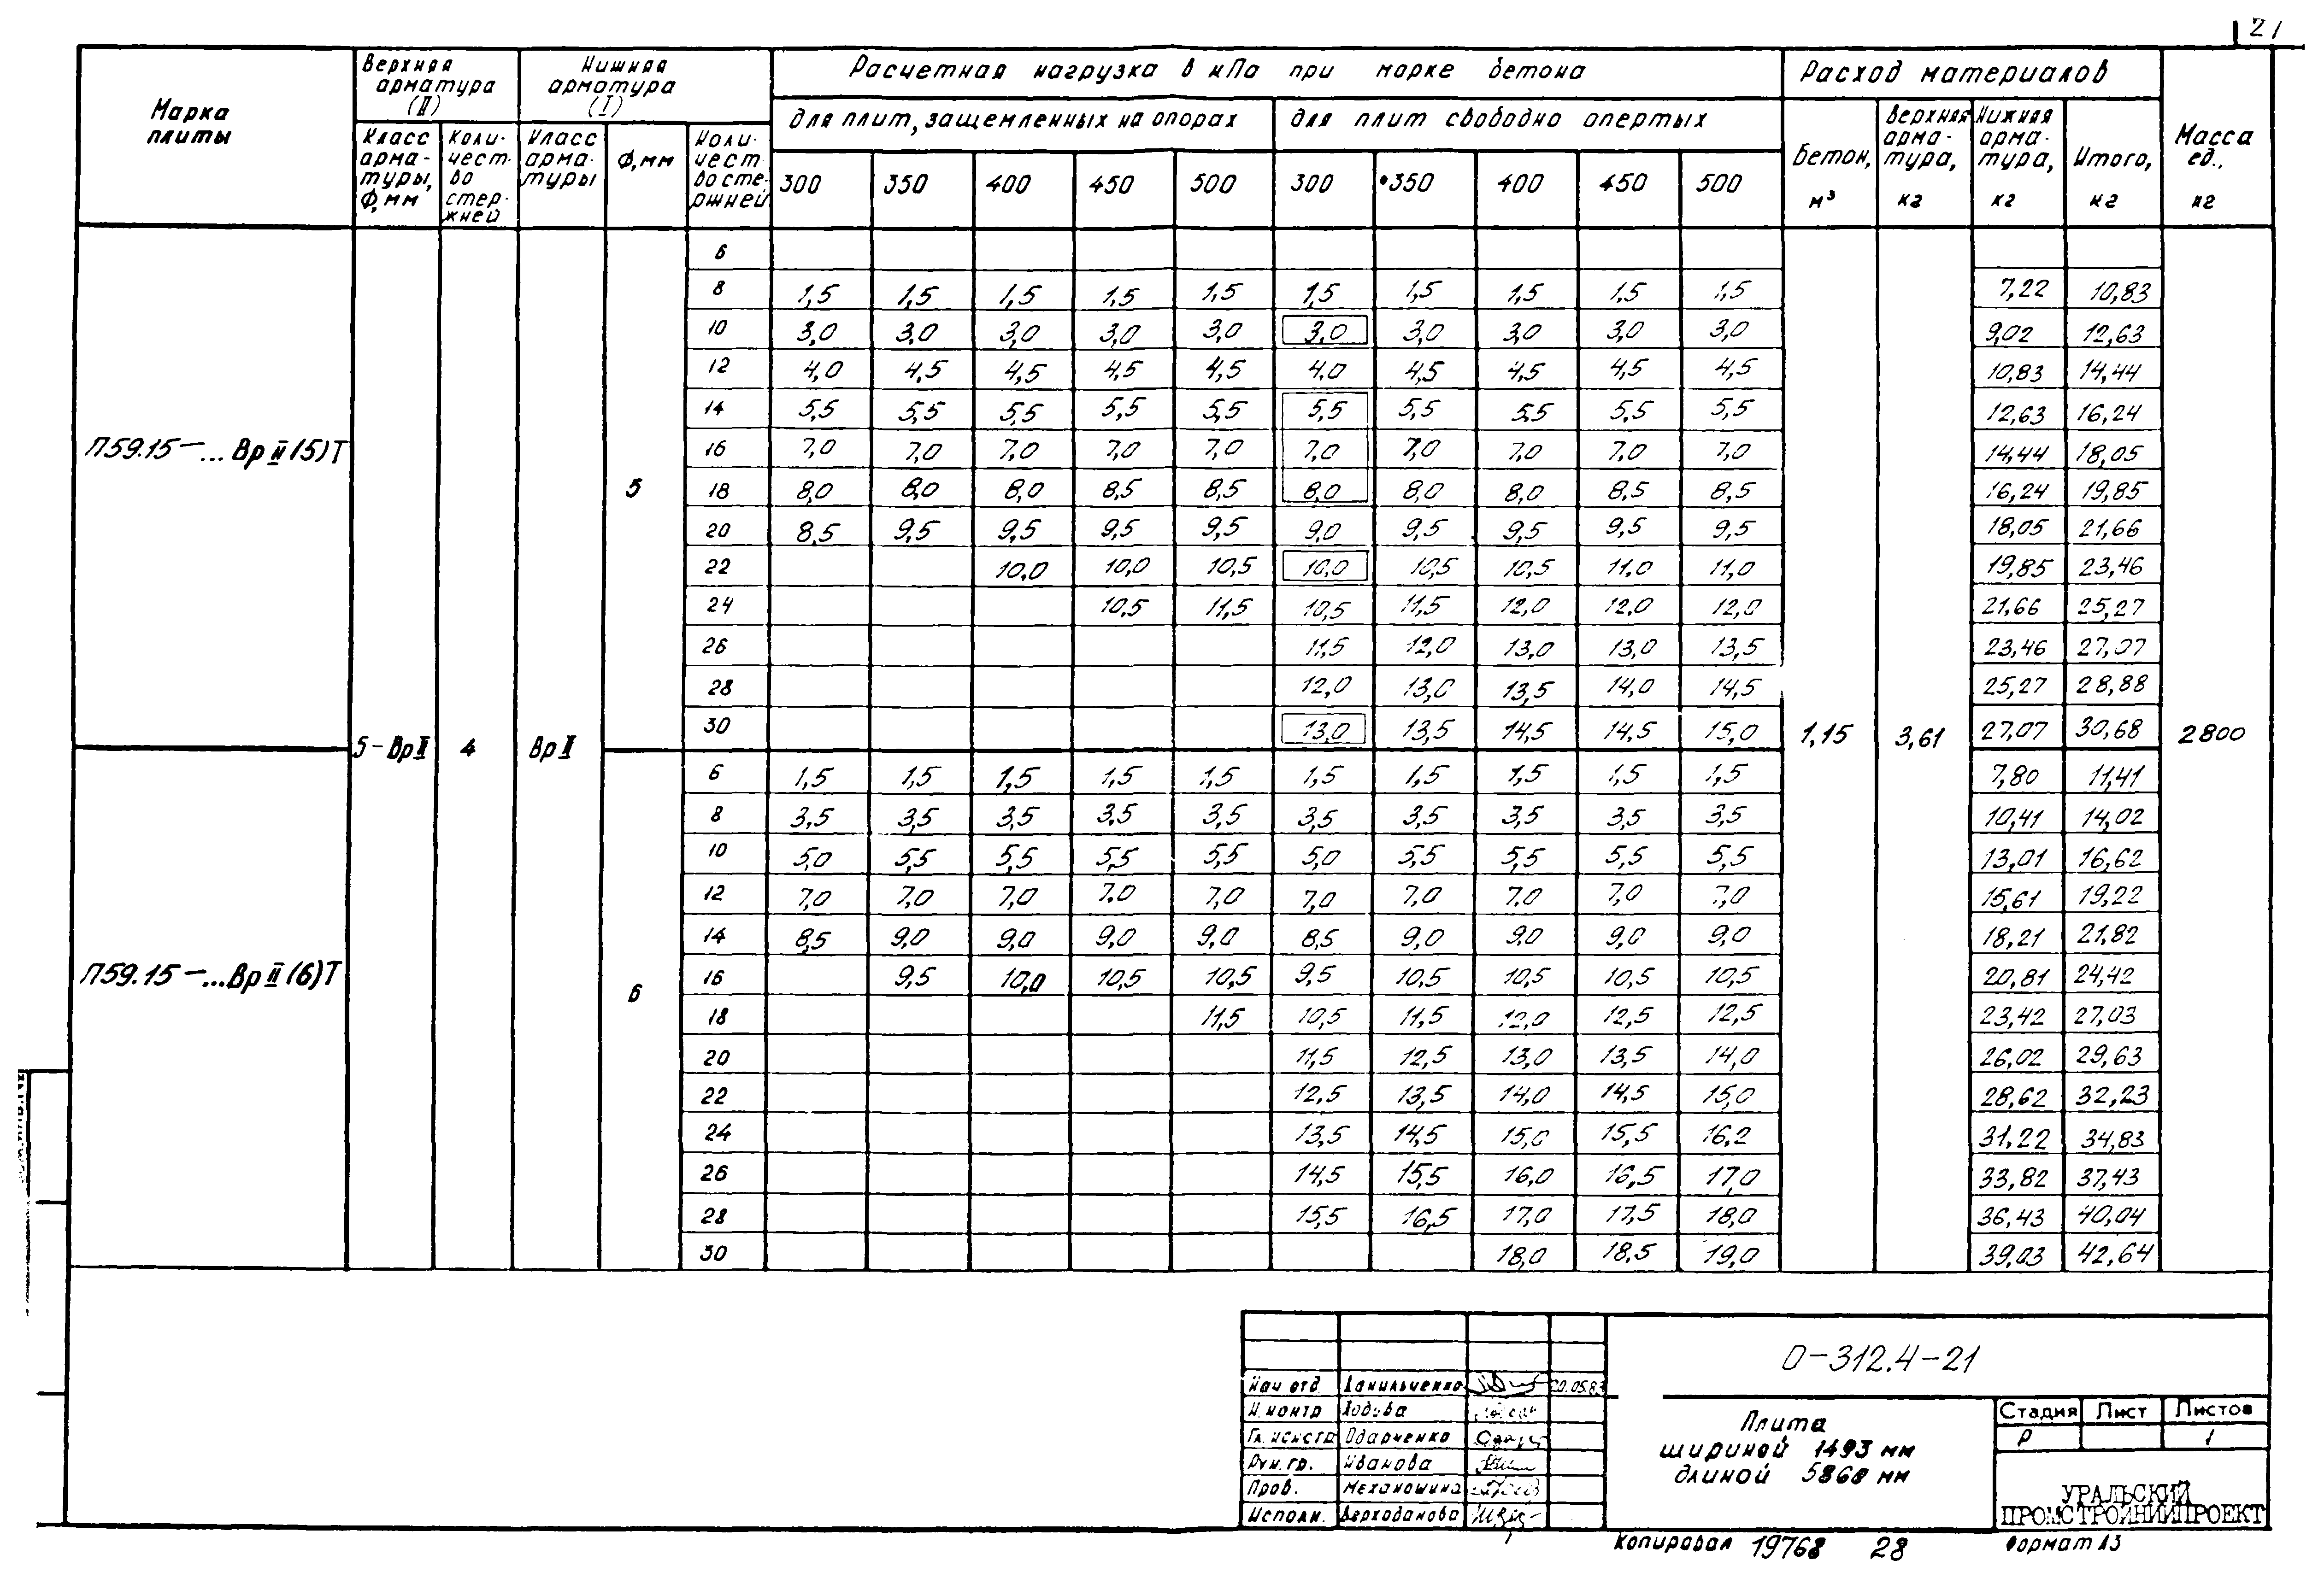 21
Марка плиты
Верхняя арматура (II)
Нижняя арматура (I)
Расчетная нагрузка в кПа при марке бетона
Расход материалов
Масса ед., кг
для плит, защемленных на опорах
для плит свободно опертых
Класс арма- туры, Ф,мм
Коли- чест- во стер- жней
Класс арма- туры
Ф,мм
Коли- чест- во сте- ржней
300 350 400 450 500 300 350 400 450 500
Бетон, м³
Верхняя арма- тура, кг
Нижняя арма- тура, кг
Итого, кг
6
8 1,5 1,5 1,5 1,5 1,5 1,5 1,5 1,5 1,5 1,5 7,22 10,83
10 3,0 3,0 3,0 3,0 3,0 3,0 3,0 3,0 3,0 3,0 9,02 12,63
12 4,0 4,5 4,5 4,5 4,5 4,0 4,5 4,5 4,5 4,5 10,83 14,44
14 5,5 5,5 5,5 5,5 5,5 5,5 5,5 5,5 5,5 5,5 12,63 16,24
П59.15–...Вр II (5)Т
16 7,0 7,0 7,0 7,0 7,0 7,0 7,0 7,0 7,0 7,0 14,44 18,05
5
18 8,0 8,0 8,0 8,5 8,5 8,0 8,0 8,0 8,5 8,5 16,24 19,85
20 8,5 9,5 9,5 9,5 9,5 9,0 9,5 9,5 9,5 9,5 18,05 21,66
22 10,0 10,0 10,5 10,0 10,5 10,5 11,0 11,0 19,85 23,46
24 10,5 11,5 10,5 11,5 12,0 12,0 12,0 21,66 25,27
26 11,5 12,0 13,0 13,0 13,5 23,46 27,07
28 12,0 13,0 13,5 14,0 14,5 25,27 28,88
30 13,0 13,5 14,5 14,5 15,0 27,07 30,68
5-Вр II 4 Вр II 1,15 3,61 2800
6 1,5 1,5 1,5 1,5 1,5 1,5 1,5 1,5 1,5 1,5 7,80 11,41
8 3,5 3,5 3,5 3,5 3,5 3,5 3,5 3,5 3,5 3,5 10,41 14,02
10 5,0 5,5 5,5 5,5 5,5 5,0 5,5 5,5 5,5 5,5 13,01 16,62
12 7,0 7,0 7,0 7,0 7,0 7,0 7,0 7,0 7,0 7,0 15,61 19,22
14 8,5 9,0 9,0 9,0 9,0 8,5 9,0 9,0 9,0 9,0 18,21 21,82
П59.15–...Вр II (6)Т
6
16 9,5 10,0 10,5 10,5 9,5 10,5 10,5 10,5 10,5 20,81 24,42
18 11,5 10,5 11,5 12,0 12,5 12,5 23,42 27,03
20 11,5 12,5 13,0 13,5 14,0 26,02 29,63
22 12,5 13,5 14,0 14,5 15,0 28,62 32,23
24 13,5 14,5 15,0 15,5 16,2 31,22 34,83
26 14,5 15,5 16,0 16,5 17,0 33,82 37,43
28 15,5 16,5 17,0 17,5 18,0 36,43 40,04
30 18,0 18,5 19,0 39,03 42,64
О-312.4-21
Нач отд. Данильченко 20.05.83
Н.контр Ходова
Гл. констр Одарченко
Рук. гр. Иванова
Пров. Механошина
Исполн. Верходанова
Плита
шириной 1493 мм
длиной 5860 мм
Стадия Лист Листов
Р 1
УРАЛЬСКИЙ
ПРОМСТРОЙНИИПРОЕКТ
Копировал 19768 28 Формат А3